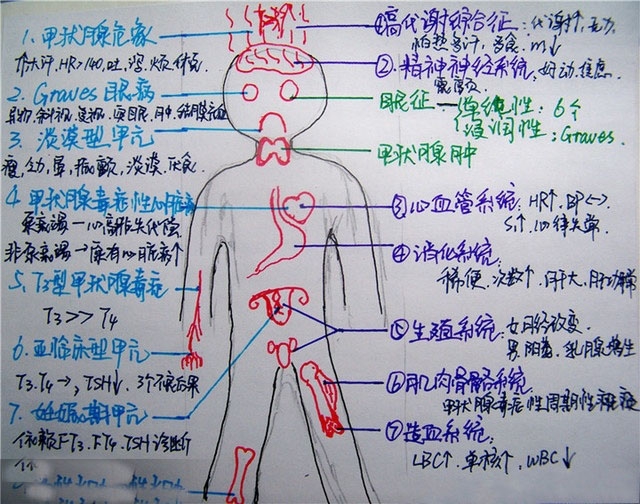 1. 甲状腺危象
大汗. HR>140. 吐. 泻. 烦.
2. Graves 眼病
3. 淡漠型甲亢
瘦, 幼, 晕, 震颤, 淡漠, 厌食
4 甲状腺毒症性心脏病
泵衰竭 — 心脏失代偿
非泵衰竭→原有心脏病↑
5. T3型甲状腺毒症
T3 >> T4
6. 亚临床型甲亢
T3. T4 →, TSH↓. 3个不良后果
7. 妊娠期甲亢
依赖FT3. FT4. TSH诊断
①高代谢综合征: 代谢↑, 乏力
怕热多汗, 多食. m↓
②. 精神神经系统: 好动. 焦虑.
眼征 — 单纯性: 6个
浸润性: Graves.
甲状腺肿
③心血管系统: HR↑. BP<->
S1↑. 心律失常
④ 消化系统:
稀便. 次数↑. 肝大. 肝功异常
⑤生殖系统: 女月经改变.
男阳萎. 乳腺增生
⑥肌肉骨骼系统:
甲状腺毒症性周期性瘫痪
⑦造血系统:
LBC↑. 单核↑. WBC↓